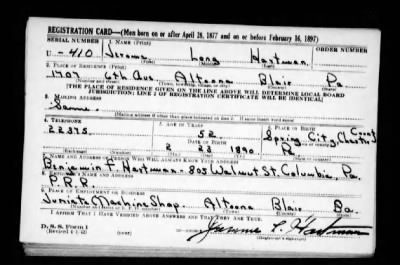 REGISTRATION CARD—(Men born on or after April 28, 1877 and on or before February 16, 1897)
SERIAL NUMBER 1. NAME (Print) ORDER NUMBER
U-410 Jerome Long Hartman
(First) (Middle) (Last)
2. PLACE OF RESIDENCE (Print)
1707 6th Ave. Altoona Blair Pa.
[THE PLACE OF RESIDENCE GIVEN ON THE LINE ABOVE WILL DETERMINE LOCAL BOARD
JURISDICTION; LINE 2 OF REGISTRATION CERTIFICATE WILL BE IDENTICAL]
3. MAILING ADDRESS
Same
[Mailing address if other than place indicated on line 2. If same insert word same]
4. TELEPHONE 5. AGE IN YEARS 6. PLACE OF BIRTH
22375 52 Spring City, Chester
DATE OF BIRTH
2 23 1890 Pa
7. NAME AND ADDRESS OF PERSON WHO WILL ALWAYS KNOW YOUR ADDRESS
Benjamin F. Hartman - 805 Walnut St. Columbia, Pa.
8. EMPLOYER'S NAME AND ADDRESS
P.R.R.
9. PLACE OF EMPLOYMENT OR BUSINESS
Juniata Machine Shop. Altoona Blair Pa.
I AFFIRM THAT I HAVE VERIFIED ABOVE ANSWERS AND THAT THEY ARE TRUE.
D. S. S. Form 1
Jerome L. Hartman
(Registrant's signature)